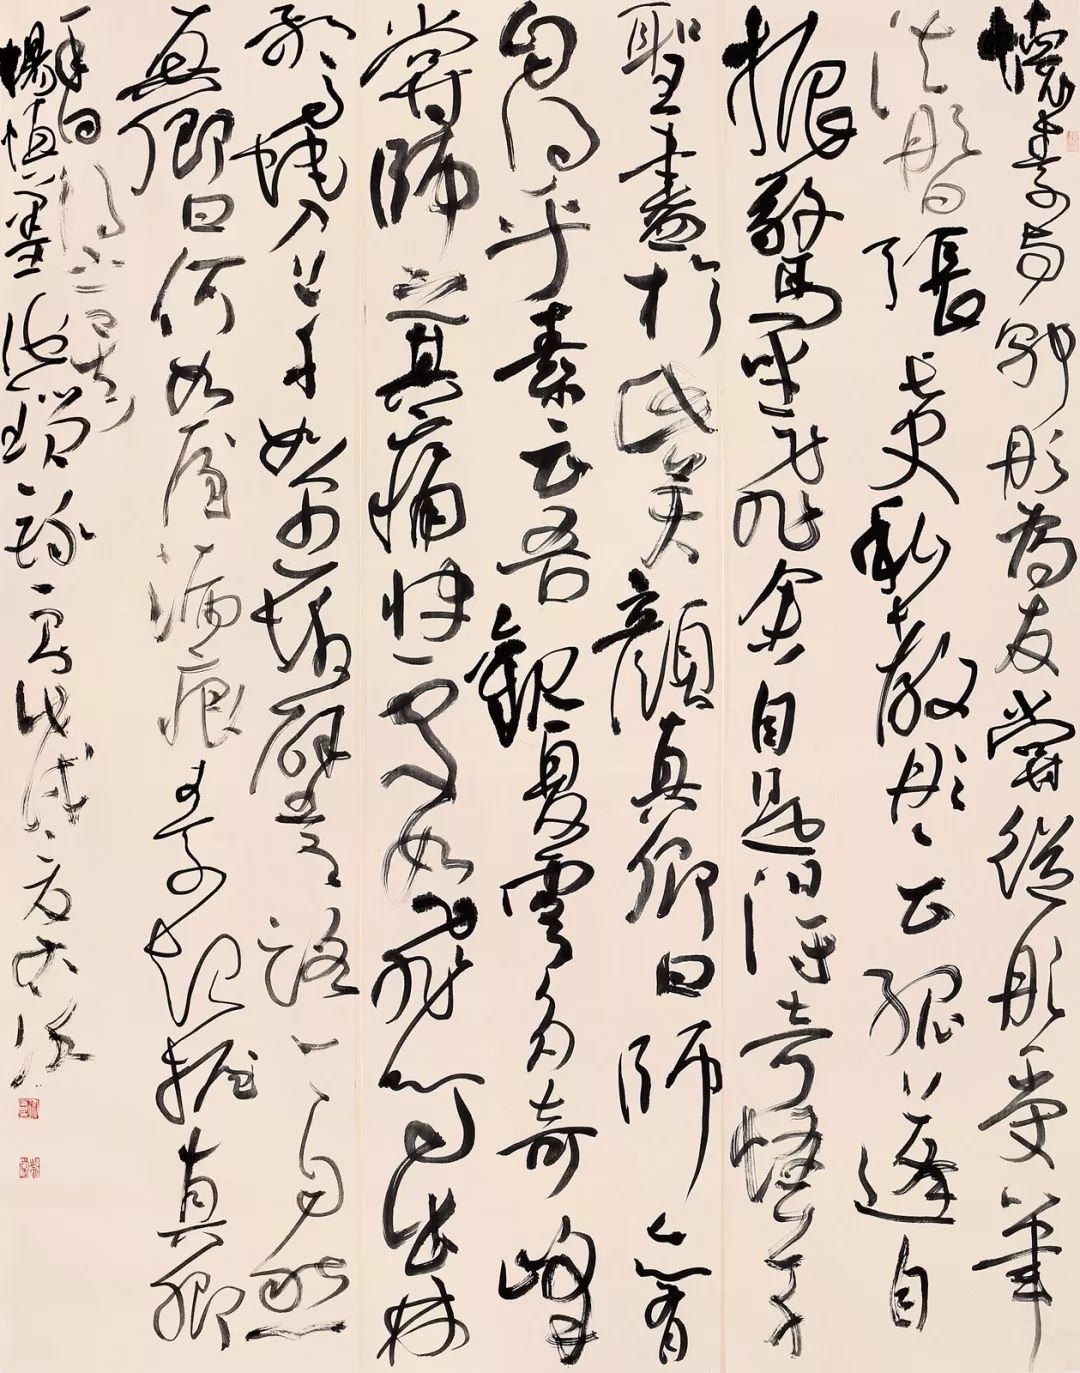 懷素與邬彤為友嘗從彤受筆
法彤曰張長史私教彤彤云孤蓬自
振驚沙坐飛余自是得奇怪草
聖盡於此矣顏真卿曰師亦有
自得乎素云吾觀夏雲多奇峰
嘗師之其痛快處如飛鳥出林
驚蛇入草又如遇坼壁之路一一自然
真卿曰何如屋漏痕素起握真卿
手曰得之矣
楊慎墨池璅錄 戊戌